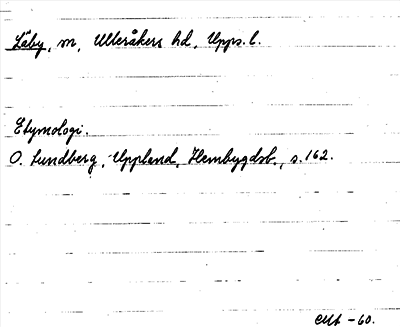 Läby, sn, Ulleråkers hd, Upps. l.
Etymologi.
O. Lundberg, Uppland, Hembygdsb., s. 162.
-60.